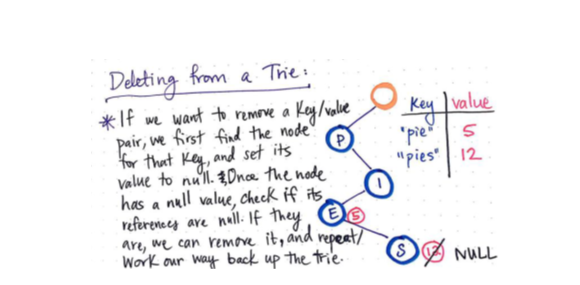 Deleting from a Trie:
* If we want to remove a Key/value
pair, we first find the node
for that Key, and set its
value to null. Once the node
has a null value, check if its
references are null. If they
are, we can remove it, and repeat/
work our way back up the trie.
Key value
"pie" 5
"pies" 12
P
I
E 5
S 12 NULL